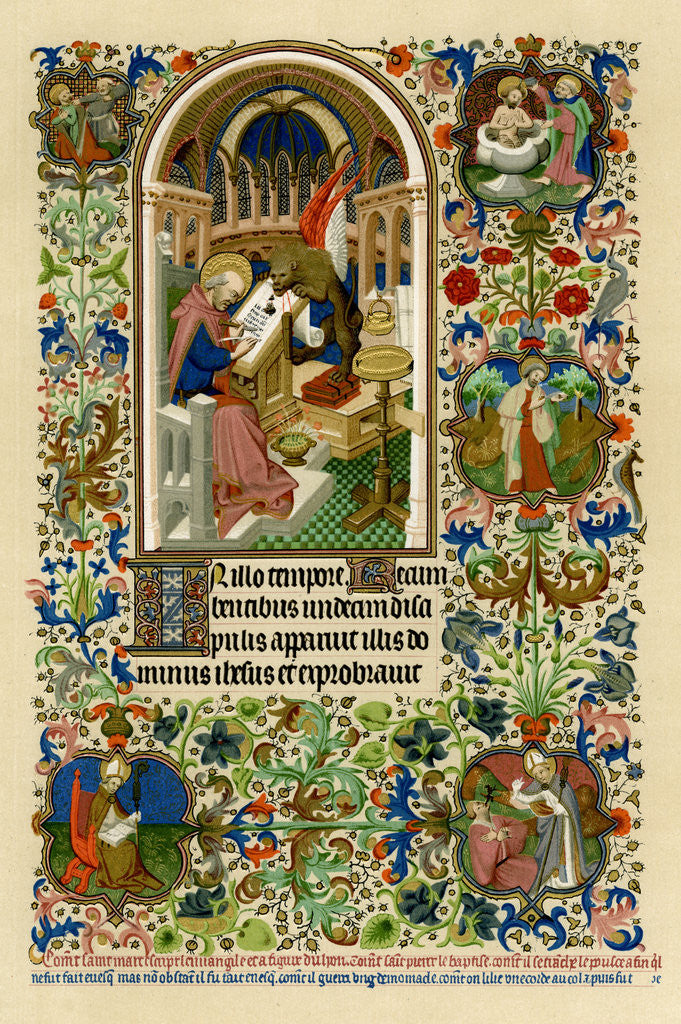 IN illo tempore. Recum
bentibus undecim disci
pulis apparuit illis do
minus ihesus et exprobravit
Comēt saint marc escript leuuangile et a figure du lyon. Comēt saīt pierre le baptise. comēt il se trancha le pousce a fin ql
ne fut fait evesq mas nō obstāt il fu fait evesq. comēt il gueri ung demoniacle. comēt on li lie une corde au col & puis fut